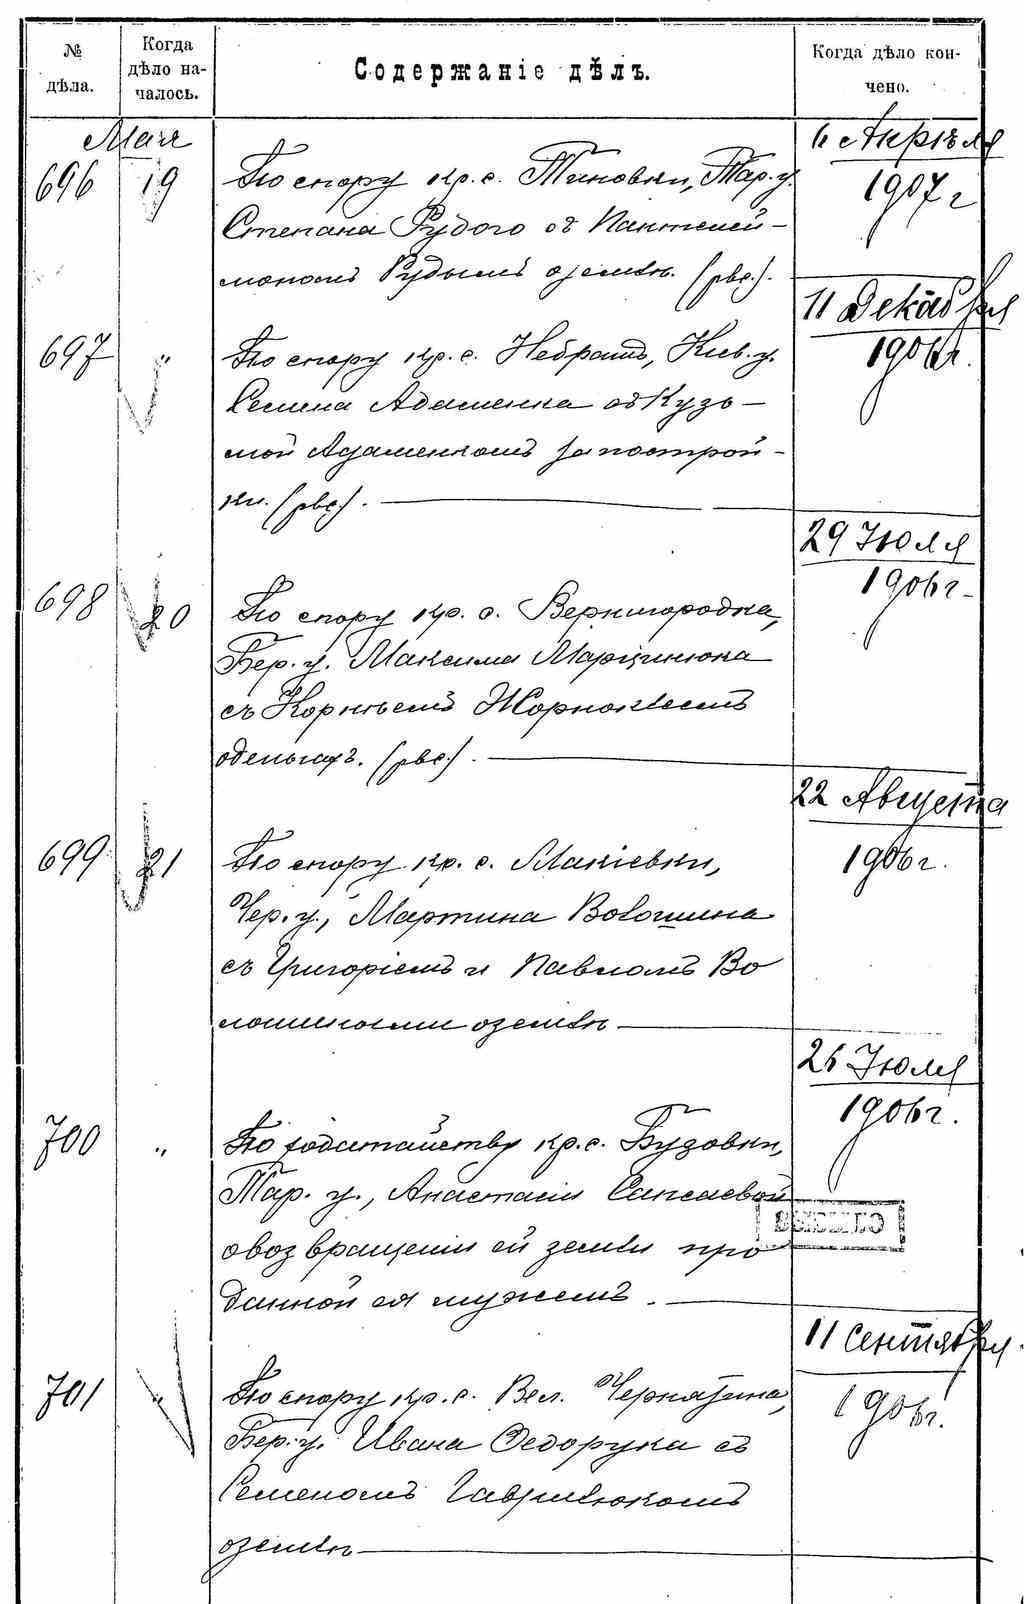 № дѣла.
Когда дѣло на-
чалось.
Содержаніе дѣлъ.
Когда дѣло кон-
чено.
Мая
696 19
По спору кр. с. Тиновки, Тар. у.
Степана Рудого съ Пантелей-
мономъ Рудымъ о землѣ. (рвс.).
6 Апрѣля
1907 г
697 "
По спору кр. с. Небратъ, Кіев. у.
Семена Адаменка съ Кузь-
мой Адаменкомъ за построй-
ки. (рвс.).
11 Декабря
1906 г.
698 20
По спору кр. с. Вернигородка,
Бер. у. Максима Марцинюка
съ Корнѣемъ Жорноклеемъ
о деньгахъ. (рвс.).
29 Июля
1906 г.
699 21
По спору кр. с. Макіевки,
Чер. у., Мартина Волошина
съ Григоріемъ и Павломъ Во
лошиными о землѣ
22 Августа
1906 г.
700 "
По ходатайству кр. с. Бузовки,
Тар. у., Анастасіи
о возвращеніи ей земли про
данной ея мужемъ.
26 Июля
1906 г.
701 "
По спору кр. с. Вел. Чернятина,
Бер. у. Ивана Федорука съ
Семеномъ Гаврилюкомъ
о землѣ
11 Сентября
1906 г.